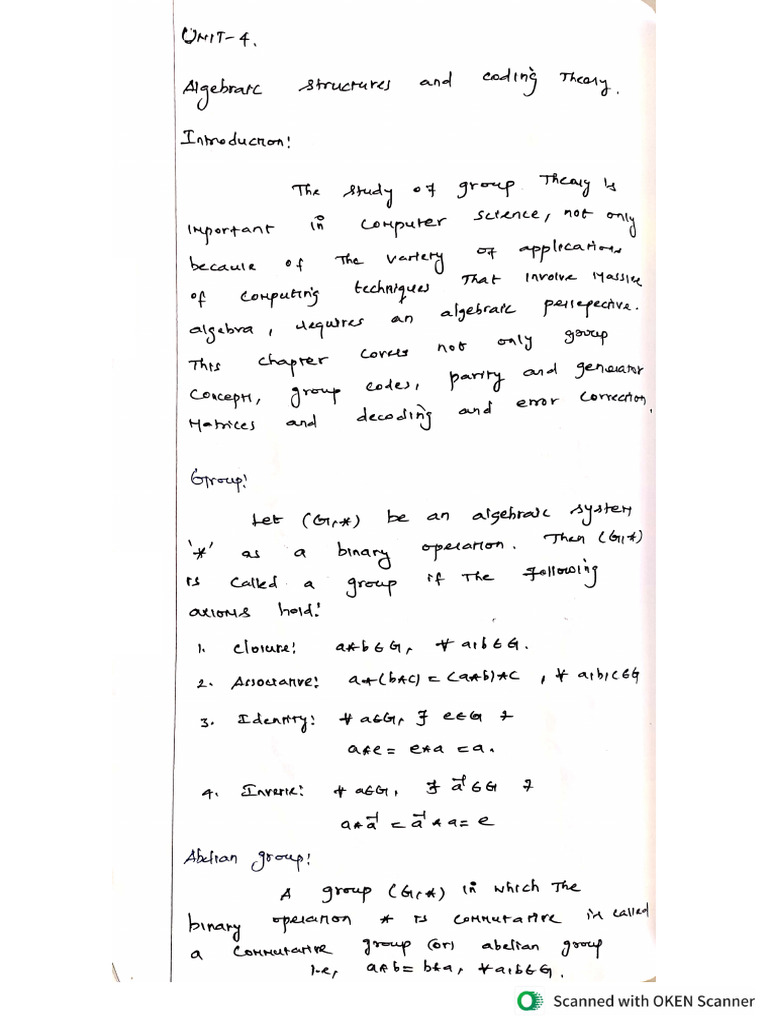 UNIT-4.
Algebraic structures and coding Theory.
Introduction:
The study of group Theory is
important in computer science, not only
because of the variety of applications
of computing techniques That involve Massive
algebra, requires an algebraic persepective.
This chapter covers not only group
concepts, group codes, parity and generator
Matrices and decoding and error correction.
Group:
Let (G,*) be an algebraic system
'*' as a binary operation. Then (G,*)
is called a group if The following
axioms hold:
1. Closure: a*b∈G, ∀ a,b∈G.
2. Associative: a*(b*c) = (a*b)*c , ∀ a,b,c∈G
3. Identity: ∀ a∈G, ∃ e∈G ∋
a*e = e*a = a.
4. Inverse: ∀ a∈G, ∃ a⁻¹∈G ∋
a*a⁻¹ = a⁻¹*a = e
Abelian group:
A group (G,*) in which The
binary operation * is commutative is called
a commutative group (or) abelian group
i.e, a*b = b*a, ∀a,b∈G.
Scanned with OKEN Scanner